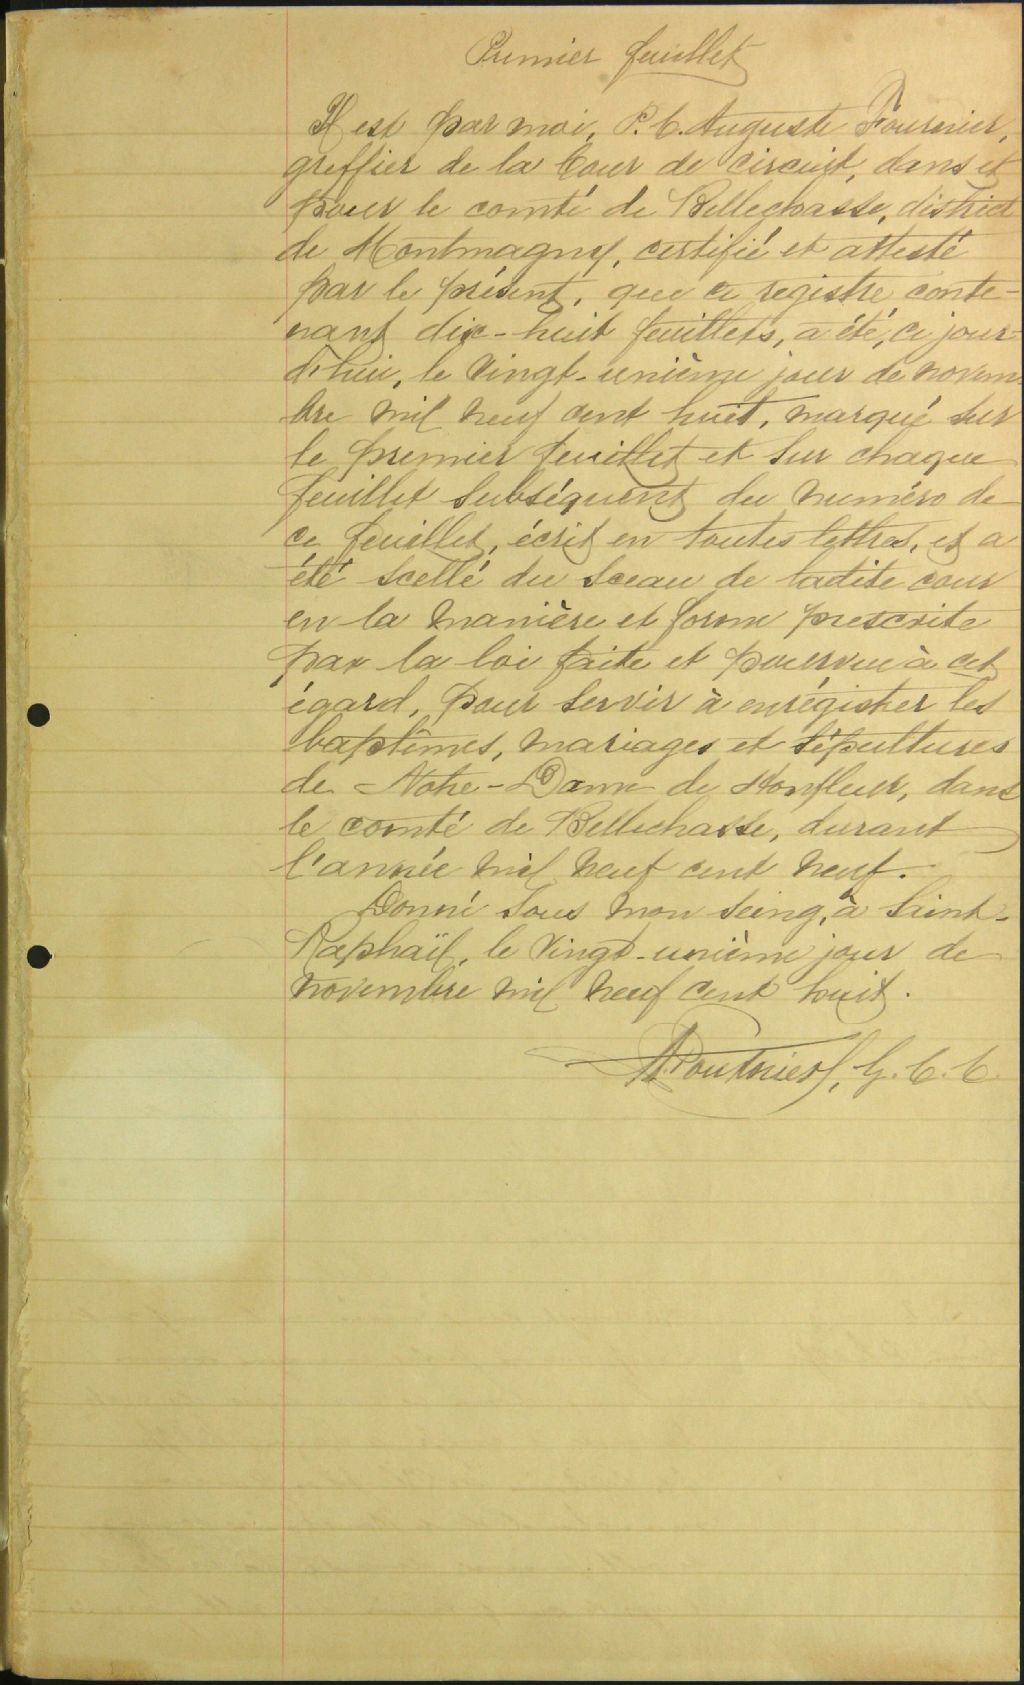 Premier feuillet
Il est par moi, P. C. Auguste Fournier,
greffier de la Cour de circuit, dans et
pour le comté de Bellechasse, district
de Montmagny, certifié et attesté
par le présent, que ce registre conte-
nant dix-huit feuillets, a été, ce jour-
d'hui, le vingt-unième jour de novem-
bre mil neuf cent huit, marqué sur
le premier feuillet et sur chaque
feuillet subséquent du numéro de
ce feuillet, écrit en toutes lettres, et a
été scellé du sceau de ladite cour
en la manière et forme prescrite
par la loi faite et pourvue à cet
égard, pour servir à enrégistrer les
baptêmes, mariages et sépultures
de Notre-Dame de Honfleur, dans
le comté de Bellechasse, durant
l'année mil neuf cent neuf.
Donné sous mon seing, à Saint-
Raphaël, le vingt-unième jour de
novembre mil neuf cent huit.
A. Fournier, G. C. C.